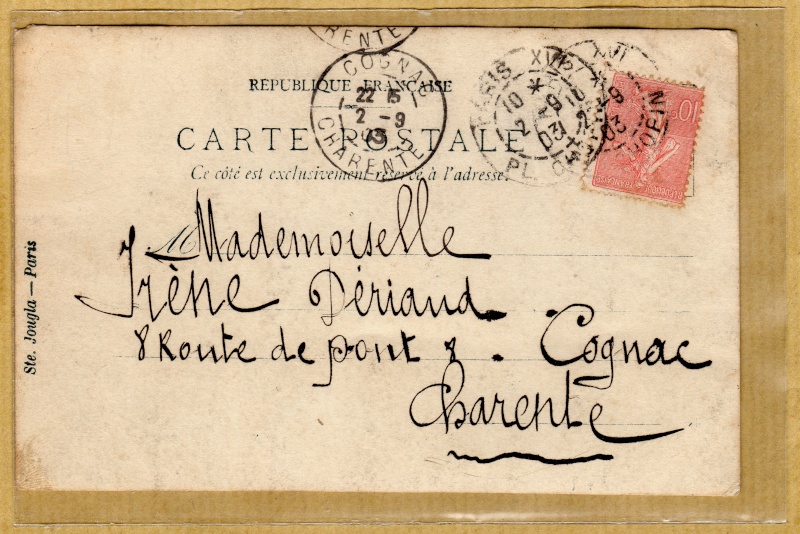 RENTE
COGNAC
22 15
2 - 9
03
CHARENTE
PARIS XVI
10 *
2 9
03
PL. CH
RÉPUBLIQUE FRANÇAISE
10c
RÉPUBLIQUE FRANÇAISE
CARTE POSTALE
Ce côté est exclusivement réservé à l'adresse.
M
Mademoiselle
Irène Dériaud
8 Route de pont 8. Cognac
Charente
Ste. Jougla — Paris